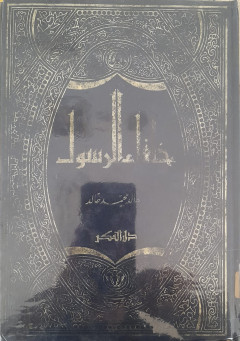 خلفاء الرسول
خالد محمد خالد
دار الفكر